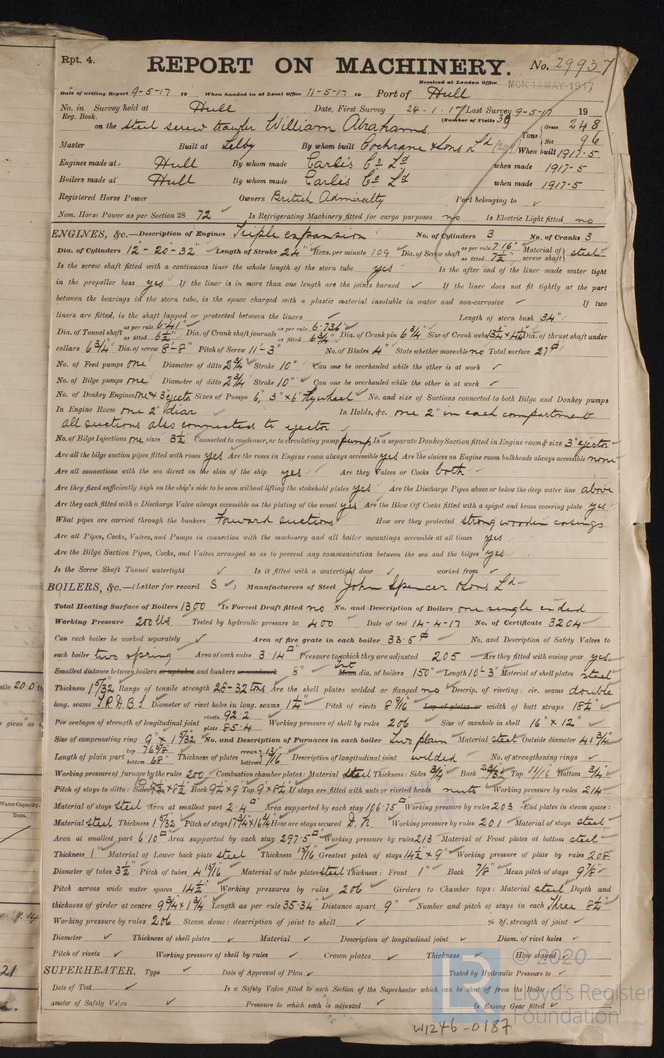 Rpt. 4.
REPORT ON MACHINERY.
No. 29937
Received at London Office MON. 14 MAY 1917
Date of writing Report 9-5-17 19 When handed in at Local Office 11-5-17 19 Port of Hull
No. in Survey held at Hull Date, First Survey 24-1-17 Last Survey 9-5-17 19
Reg. Book. (Number of Visits 39
on the steel screw trawler William Abrahams Tons Gross 248 Net 96
Master Built at Selby By whom built Cochrane & Sons Ld When built 1917-5
Engines made at Hull By whom made Earle's Co Ld when made 1917-5
Boilers made at Hull By whom made Earle's Co Ld when made 1917-5
Registered Horse Power Owners British Admiralty Port belonging to ✓
Nom. Horse Power as per Section 28 72 Is Refrigerating Machinery fitted for cargo purposes no Is Electric Light fitted no
ENGINES, &c.—Description of Engines Triple expansion No. of Cylinders 3 No. of Cranks 3
Dia. of Cylinders 12"-20"-32" Length of Stroke 24" Revs. per minute 109 Dia. of Screw shaft as per rule 7.16" as fitted 7½" Material of screw shaft steel
Is the screw shaft fitted with a continuous liner the whole length of the stern tube yes Is the after end of the liner made water tight
in the propeller boss yes If the liner is in more than one length are the joints burned ✓ If the liner does not fit tightly at the part
between the bearings in the stern tube, is the space charged with a plastic material insoluble in water and non-corrosive ✓ If two
liners are fitted, is the shaft lapped or protected between the liners ✓ Length of stern bush 34"
Dia. of Tunnel shaft as per rule 6.41" as fitted 6½" Dia. of Crank shaft journals as per rule 6.736" as fitted 6¾" Dia. of Crank pin 6¾" Size of Crank webs Dia. of thrust shaft under
collars 6¾" Dia. of screw 8'-8" Pitch of Screw 11'-3" No. of Blades 4 State whether moveable no Total surface 27
No. of Feed pumps one Diameter of ditto 2¾" Stroke 10" Can one be overhauled while the other is at work ✓
No. of Bilge pumps one Diameter of ditto 2¾" Stroke 10" Can one be overhauled while the other is at work ✓
No. of Donkey Engines one & 3" ejector Sizes of Pumps 6", 3" x 6" flywheel No. and size of Suctions connected to both Bilge and Donkey pumps
In Engine Room one 2" diar In Holds, &c. one 2" in each compartment
all suctions also connected to ejector
No. of Bilge Injections one sizes 3½" Connected to condenser, or to circulating pump pump Is a separate Donkey Suction fitted in Engine room & size 3" ejector
Are all the bilge suction pipes fitted with roses yes Are the roses in Engine room always accessible yes Are the sluices on Engine room bulkheads always accessible none
Are all connections with the sea direct on the skin of the ship yes Are they Valves or Cocks both
Are they fixed sufficiently high on the ship's side to be seen without lifting the stokehold plates yes Are the Discharge Pipes above or below the deep water line above
Are they each fitted with a Discharge Valve always accessible on the plating of the vessel yes Are the Blow Off Cocks fitted with a spigot and brass covering plate yes
What pipes are carried through the bunkers Forward suctions How are they protected strong wooden casings
Are all Pipes, Cocks, Valves, and Pumps in connection with the machinery and all boiler mountings accessible at all times yes
Are the Bilge Suction Pipes, Cocks, and Valves arranged so as to prevent any communication between the sea and the bilges yes
Is the Screw Shaft Tunnel watertight ✓ Is it fitted with a watertight door ✓ worked from ✓
BOILERS, &c.—(Letter for record S) Manufacturers of Steel John Spencer & Sons Ld
Total Heating Surface of Boilers 1300 Is Forced Draft fitted no No. and Description of Boilers one single ended
Working Pressure 200 lbs Tested by hydraulic pressure to 400 Date of test 14-4-17 No. of Certificate 3204
Can each boiler be worked separately ✓ Area of fire grate in each boiler 33.5 No. and Description of Safety Valves to
each boiler two spring Area of each valve 3.14" Pressure to which they are adjusted 205 Are they fitted with easing gear yes
Smallest distance between boilers or uptakes and bunkers or woodwork 8" Mean dia. of boilers 150" Length 10'-3" Material of shell plates steel
Thickness 1 5/32 Range of tensile strength 28-32 tons Are the shell plates welded or flanged no Descrip. of riveting: cir. seams double
long. seams T.R.D.B.S. Diameter of rivet holes in long. seams 1¼" Pitch of rivets 8 9/16" Lap of plates or width of butt straps 18½"
Per centages of strength of longitudinal joint rivets 92.2 plate 85.4 Working pressure of shell by rules 206 Size of manhole in shell 16" x 12"
Size of compensating ring 9" x 1 9/32 No. and Description of Furnaces in each boiler two plain Material steel Outside diameter 41¾"
Length of plain part top 76⅞" bottom 68" Thickness of plates crown 13/16" bottom Description of longitudinal joint welded No. of strengthening rings ✓
Working pressure of furnace by the rules 200 Combustion chamber plates: Material steel Thickness: Sides ¾" Back 23/32" Top 11/16" Bottom ¾"
Pitch of stays to ditto: Sides Back 9¼ x 9 Top 9 x 8½" If stays are fitted with nuts or riveted heads nuts Working pressure by rules 214
Material of stays steel Area at smallest part 2.4 Area supported by each stay 106.75 Working pressure by rules 203 End plates in steam space:
Material steel Thickness 1 5/32 Pitch of stays 17¾ x 16¾ How are stays secured D.N. Working pressure by rules 201 Material of stays steel
Area at smallest part 6.10 Area supported by each stay 297.5 Working pressure by rules 213 Material of Front plates at bottom steel
Thickness 1" Material of Lower back plate steel Thickness 15/16" Greatest pitch of stays 14½" x 9" Working pressure of plate by rules 208
Diameter of tubes 3½" Pitch of tubes 4 15/16" Material of tube plates steel Thickness: Front 1" Back ⅞" Mean pitch of stays 9⅞"
Pitch across wide water spaces 14½" Working pressures by rules 206 Girders to Chamber tops: Material steel Depth and
thickness of girder at centre 9¾ x 1¾ Length as per rule 35.34" Distance apart 9" Number and pitch of stays in each Three 8½"
Working pressure by rules 206 Steam dome: description of joint to shell ✓ % of strength of joint ✓
Diameter ✓ Thickness of shell plates ✓ Material ✓ Description of longitudinal joint ✓ Diam. of rivet holes ✓
Pitch of rivets ✓ Working pressure of shell by rules ✓ Crown plates ✓ Thickness ✓ How stayed ✓
SUPERHEATER. Type ✓ Date of Approval of Plan ✓ Tested by Hydraulic Pressure to ✓
Date of Test ✓ Is a Safety Valve fitted to each Section of the Superheater which can be shut off from the Boiler ✓
ameter of Safety Valve ✓ Pressure to which each is adjusted ✓ Is Easing Gear fitted ✓
© 2020
Lloyd's Register
Foundation
W1246-0187